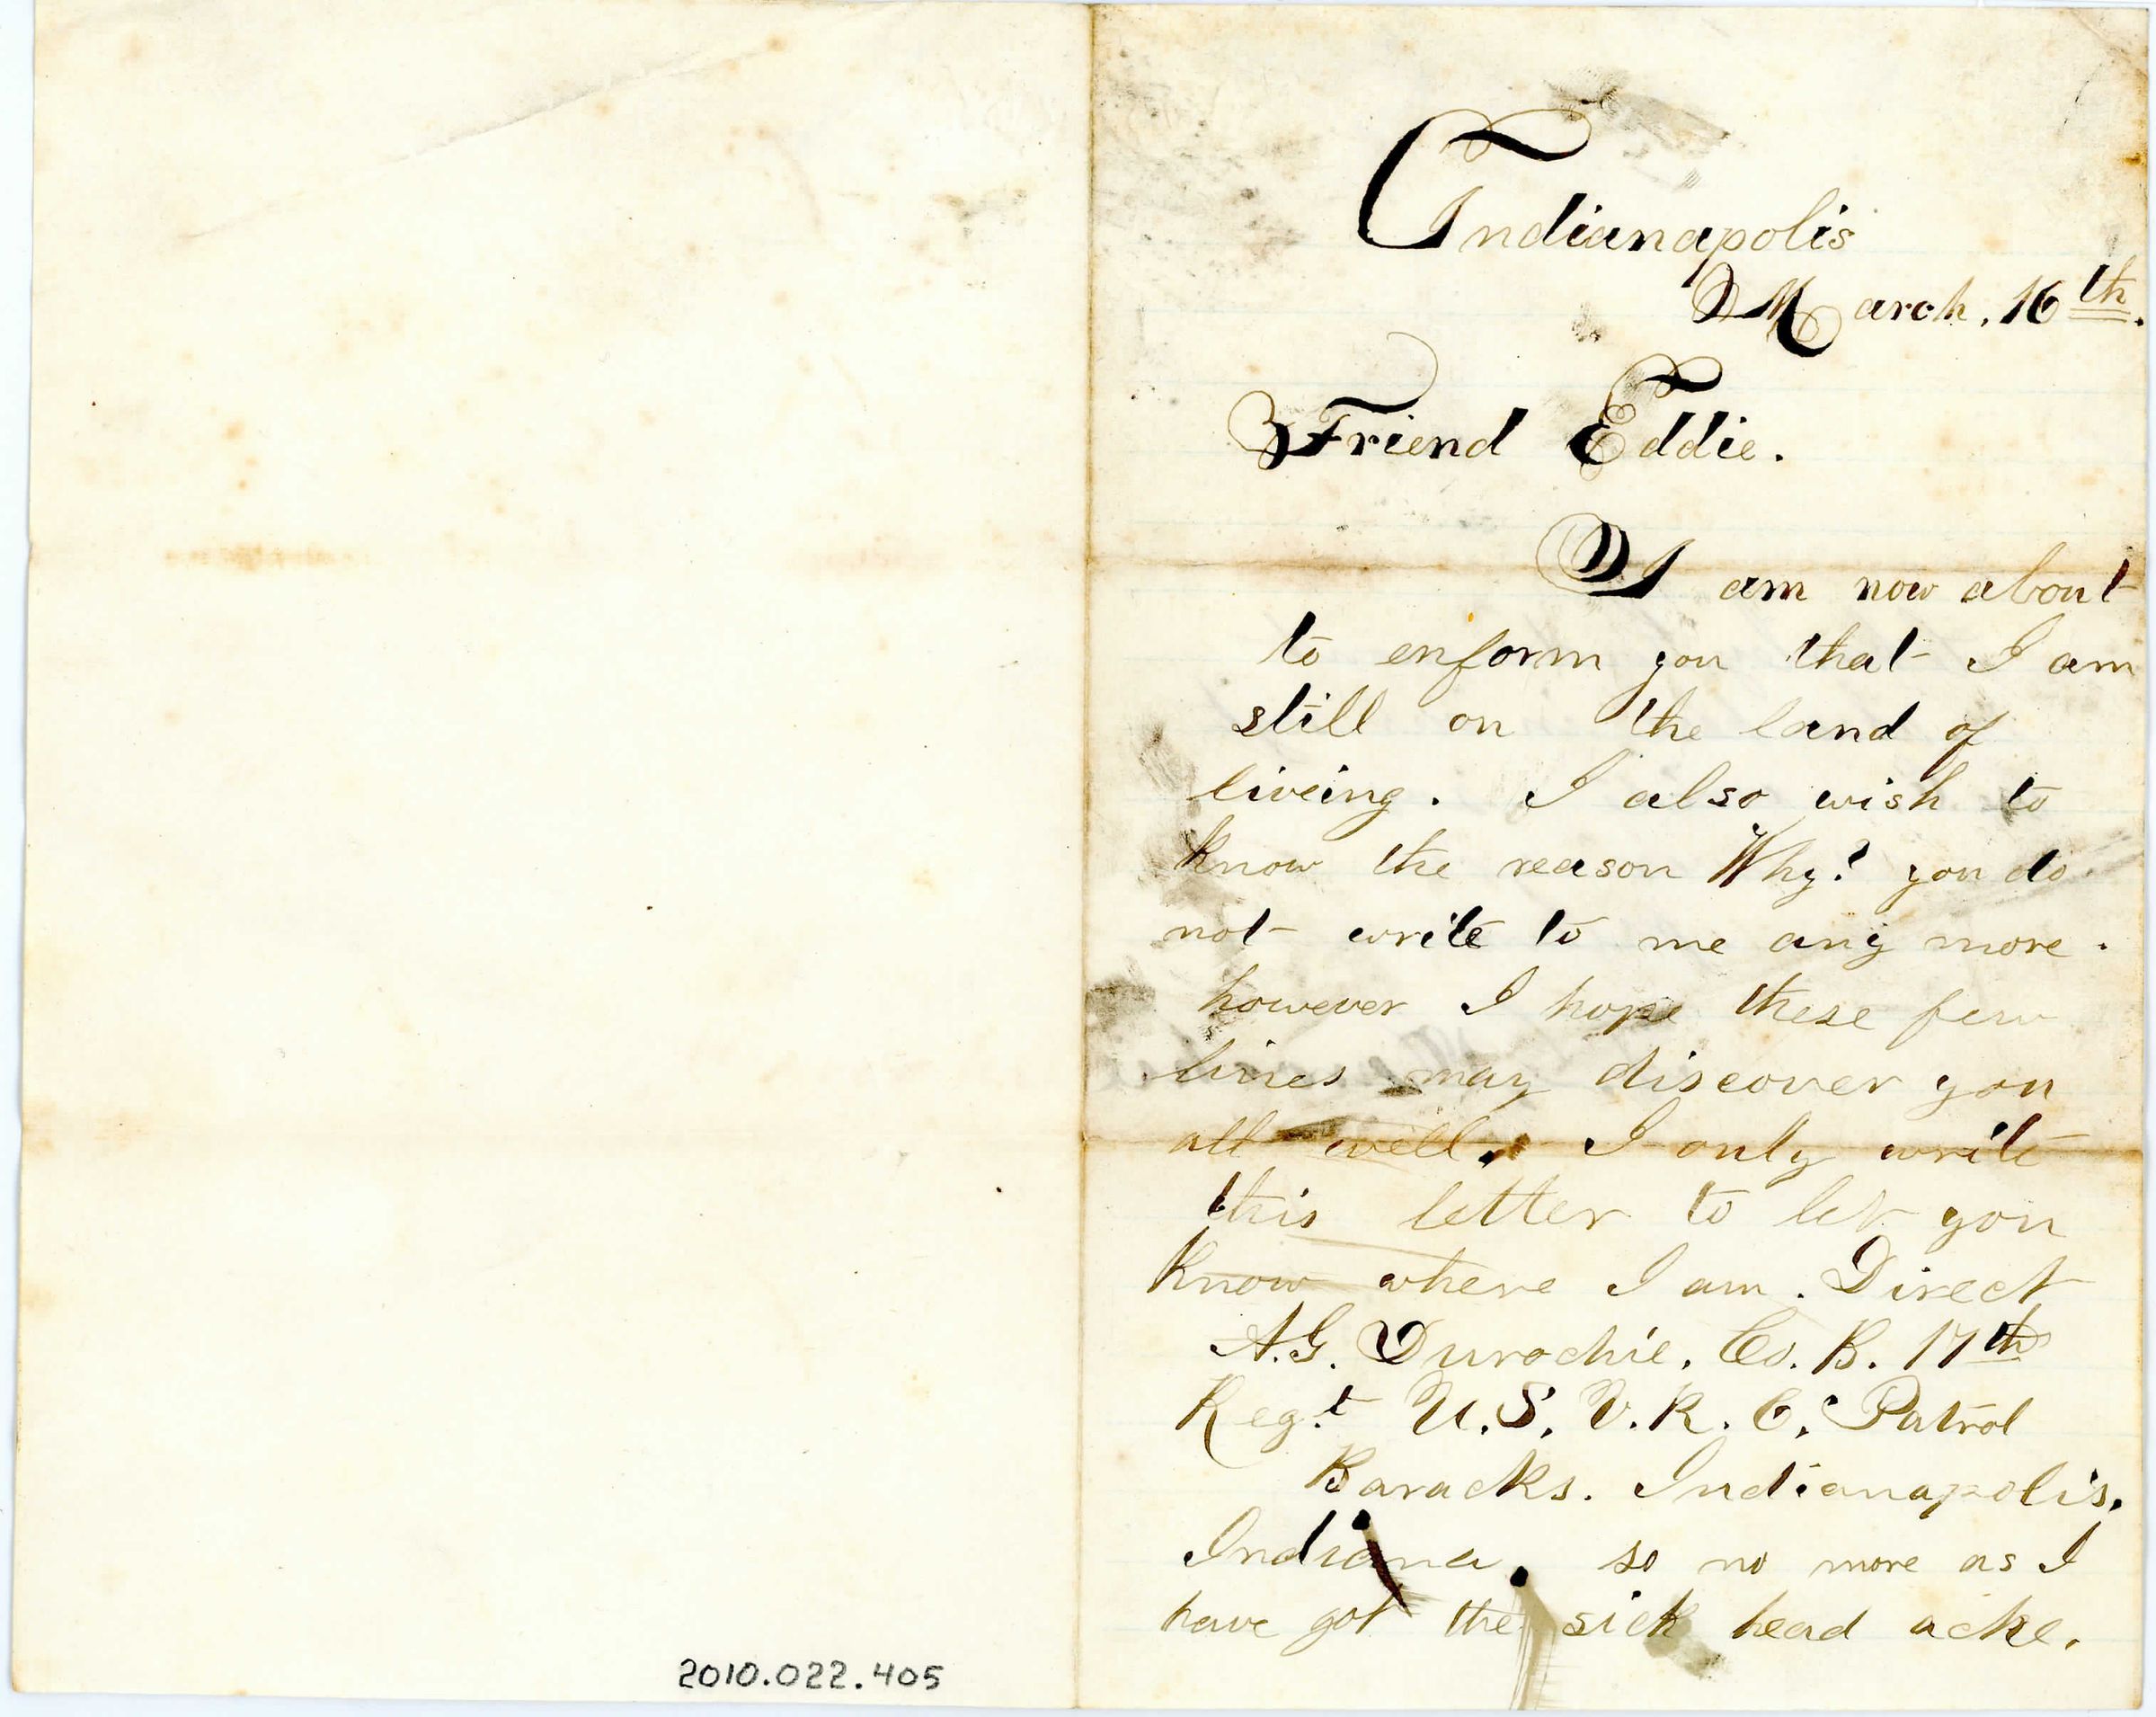 Indianapolis
March. 16th.
Friend Eddie.
I am now about
to enform you that I am
still on the land of
liveing. I also wish to
know the reason Why? you do
not write to me any more.
however I hope these few
lines may discover you
all well. I only write
this letter to let you
Know where I am. Direct
A.G. Durochie. Co. B. 17th
Reg.t U.S. V.R.C. Patrol
Baracks. Indianapolis.
Indiana. so no more as I
have got the sick head ache.
2010.022.405